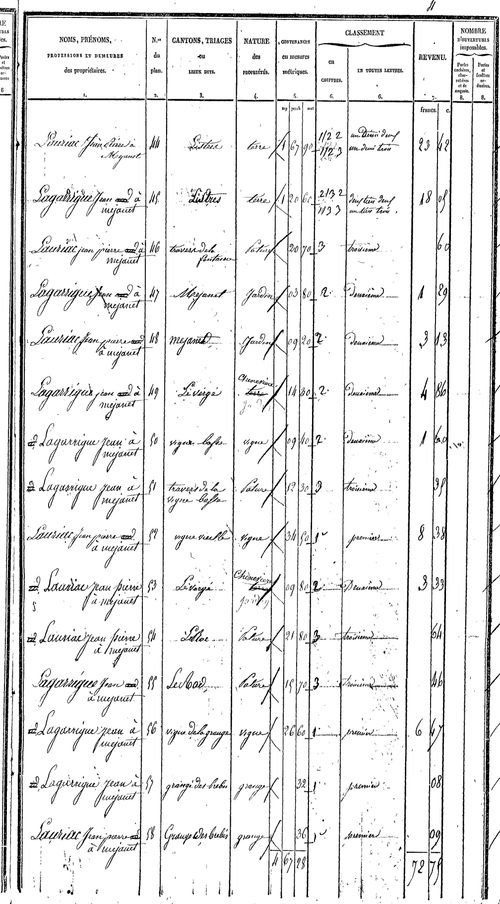 4
NOMS, PRÉNOMS,
PROFESSIONS ET DEMEURES
des propriétaires.
N.os
du
plan.
CANTONS, TRIAGES
ou
LIEUX DITS.
NATURE
des
PROPRIÉTÉS.
CONTENANCES
en mesures
métriques.
CLASSEMENT
en
CHIFFRES.
EN TOUTES LETTRES.
REVENU.
NOMBRE
D'OUVERTURES
imposables.
1. 2. 3. 4. 5. 6. 6. 7. 8. 8.
francs. c.
Lauriac Jean pierre à mejanet 44 Listres terre 1 67 90 1/2 2 1/2 3 un demi deux un demi trois 23 42
Lagarrigue Jean à mejanet 45 Listres terre 1 20 60 2/3 2 1/3 3 deux tiers deux un tiers trois 18 05
Lauriac jean pierre à mejanet 46 travers de la fontaine Pature 20 70 3 troisieme 60
Lagarrigue Jean à mejanet 47 Mejanet Jardin 03 80 2 Deuxième 1 29
Lauriac Jean pierre à mejanet 48 mejanet Jardin 09 20 2 Deuxieme 3 13
Lagarrigue jean à mejanet 49 Le vergé Cheneviere terre 14 30 2 deuxieme 4 86
Lagarrigue jean à mejanet 50 vigne basse vigne 09 40 2 deuxième 1 60
Lagarrigue jean à mejanet 51 travers de la vigne basse Pature 12 30 3 troisieme 35
Lauriac Jean pierre à mejanet 52 vigne vieille vigne 34 50 1 premier 8 38
Lauriac jean pierre à mejanet 53 Le vergé Cheneviere terre 09 80 2 Deuxieme 3 33
Lauriac jean pierre à mejanet 54 Pature 21 80 3 troisieme 64
Lagarrigue Jean à mejanet 55 Pature 15 70 3 troisieme 46
Lagarrigue jean à mejanet 56 vigne de la grange vigne 26 60 1 premier 6 47
Lagarrigue jean à mejanet 57 grange des brebis grange 32 1 premier 08
Lauriac Jean pierre à mejanet 58 Grange des brebis grange 36 1 premier 09
4 67 28 72 75